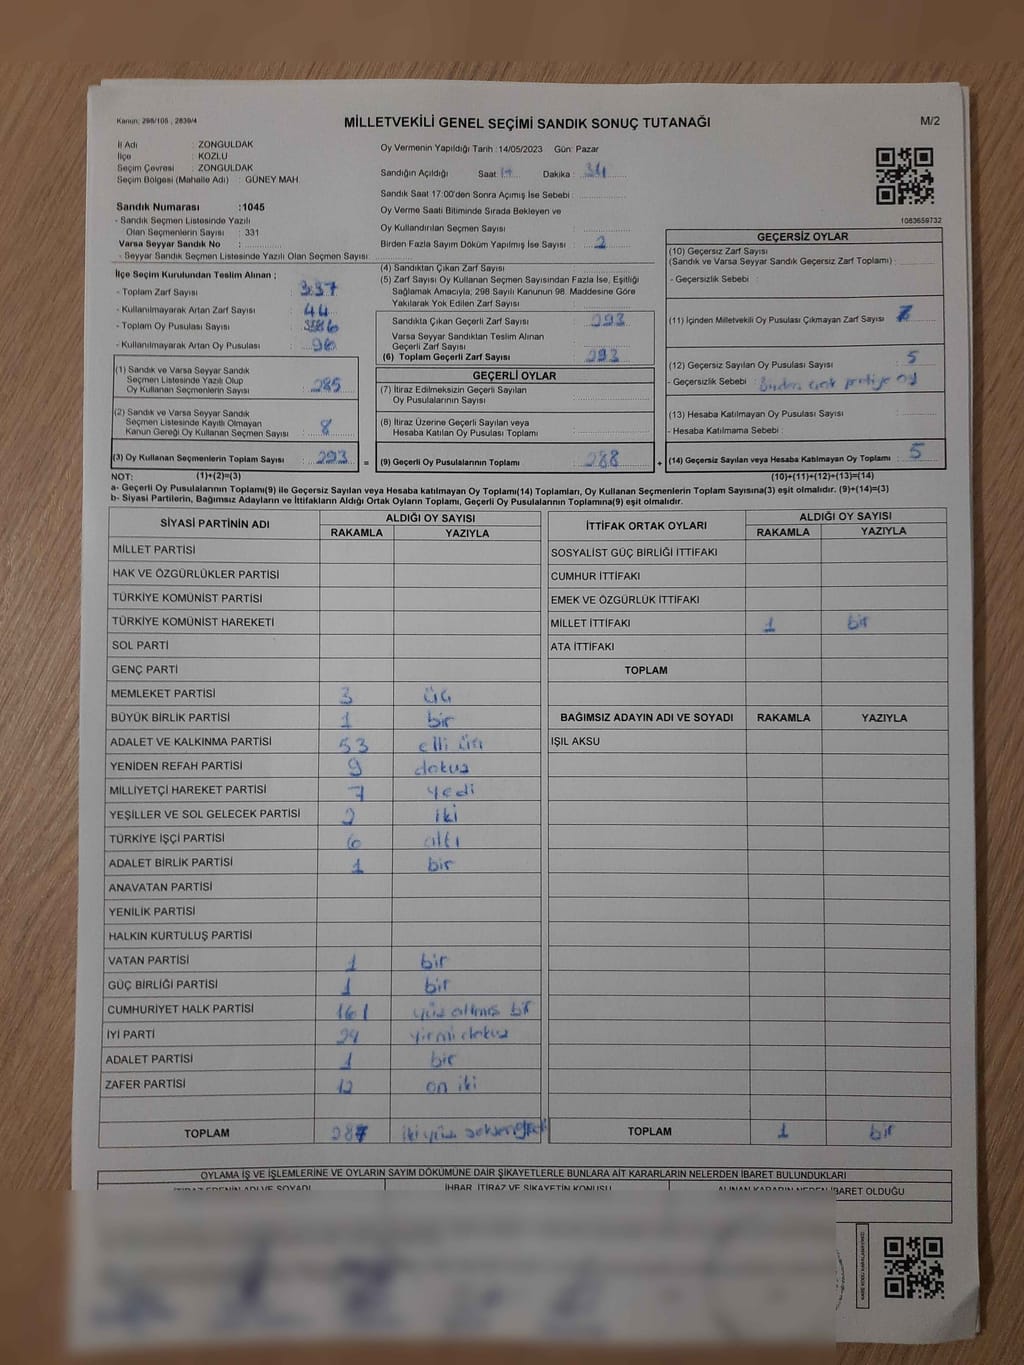 Kanun: 298/105 , 2839/4
MİLLETVEKİLİ GENEL SEÇİMİ SANDIK SONUÇ TUTANAĞI
M/2
İl Adı : ZONGULDAK
İlçe : KOZLU
Seçim Çevresi : ZONGULDAK
Seçim Bölgesi (Mahalle Adı) : GÜNEY MAH.
Sandık Numarası :1045
- Sandık Seçmen Listesinde Yazılı
Olan Seçmenlerin Sayısı : 331
Varsa Seyyar Sandık No :
- Seyyar Sandık Seçmen Listesinde Yazılı Olan Seçmen Sayısı:
Oy Vermenin Yapıldığı Tarih :14/05/2023 Gün: Pazar
Sandığın Açıldığı Saat : 17 Dakika : 34
Sandık Saat 17:00'den Sonra Açımış İse Sebebi :
Oy Verme Saati Bitiminde Sırada Bekleyen ve
Oy Kullandırılan Seçmen Sayısı :
Birden Fazla Sayım Döküm Yapılmış İse Sayısı : 2
1083659732
İlçe Seçim Kurulundan Teslim Alınan ;
- Toplam Zarf Sayısı : 337
- Kullanılmayarak Artan Zarf Sayısı : 44
- Toplam Oy Pusulası Sayısı :
- Kullanılmayarak Artan Oy Pusulası :
(1) Sandık ve Varsa Seyyar Sandık
Seçmen Listesinde Yazılı Olup
Oy Kullanan Seçmenlerin Sayısı : 285
(2) Sandık ve Varsa Seyyar Sandık
Seçmen Listesinde Kayıtlı Olmayan
Kanun Gereği Oy Kullanan Seçmen Sayısı : 8
(3) Oy Kullanan Seçmenlerin Toplam Sayısı : 293 =
(4) Sandıktan Çıkan Zarf Sayısı :
(5) Zarf Sayısı Oy Kullanan Seçmen Sayısından Fazla İse, Eşitliği
Sağlamak Amacıyla; 298 Sayılı Kanunun 98. Maddesine Göre
Yakılarak Yok Edilen Zarf Sayısı :
Sandıkta Çıkan Geçerli Zarf Sayısı : 293
Varsa Seyyar Sandıktan Teslim Alınan
Geçerli Zarf Sayısı :
(6) Toplam Geçerli Zarf Sayısı : 293
GEÇERLİ OYLAR
(7) İtiraz Edilmeksizin Geçerli Sayılan
Oy Pusulalarının Sayısı :
(8) İtiraz Üzerine Geçerli Sayılan veya
Hesaba Katılan Oy Pusulası Toplamı :
(9) Geçerli Oy Pusulalarının Toplamı : 288 +
GEÇERSİZ OYLAR
(10) Geçersiz Zarf Sayısı
(Sandık ve Varsa Seyyar Sandık Geçersiz Zarf Toplamı) :
- Geçersizlik Sebebi :
(11) İçinden Milletvekili Oy Pusulası Çıkmayan Zarf Sayısı :
(12) Geçersiz Sayılan Oy Pusulası Sayısı : 5
- Geçersizlik Sebebi : Birden çok partiye oy
(13) Hesaba Katılmayan Oy Pusulası Sayısı :
- Hesaba Katılmama Sebebi :
(14) Geçersiz Sayılan veya Hesaba Katılmayan Oy Toplamı : 5
NOT: (1)+(2)=(3) (10)+(11)+(12)+(13)=(14)
a- Geçerli Oy Pusulalarının Toplamı(9) ile Geçersiz Sayılan veya Hesaba katılmayan Oy Toplamı(14) Toplamları, Oy Kullanan Seçmenlerin Toplam Sayısına(3) eşit olmalıdır. (9)+(14)=(3)
b- Siyasi Partilerin, Bağımsız Adayların ve İttifakların Aldığı Ortak Oyların Toplamı, Geçerli Oy Pusulalarının Toplamına(9) eşit olmalıdır.
SİYASİ PARTİNİN ADI ALDIĞI OY SAYISI
RAKAMLA YAZIYLA
MİLLET PARTİSİ
HAK VE ÖZGÜRLÜKLER PARTİSİ
TÜRKİYE KOMÜNİST PARTİSİ
TÜRKİYE KOMÜNİST HAREKETİ
SOL PARTİ
GENÇ PARTİ
MEMLEKET PARTİSİ 3 üç
BÜYÜK BİRLİK PARTİSİ 1 bir
ADALET VE KALKINMA PARTİSİ 53 elli üç
YENİDEN REFAH PARTİSİ 9 dokuz
MİLLİYETÇİ HAREKET PARTİSİ 7 yedi
YEŞİLLER VE SOL GELECEK PARTİSİ 2 iki
TÜRKİYE İŞÇİ PARTİSİ 6 altı
ADALET BİRLİK PARTİSİ 1 bir
ANAVATAN PARTİSİ
YENİLİK PARTİSİ
HALKIN KURTULUŞ PARTİSİ
VATAN PARTİSİ 1 bir
GÜÇ BİRLİĞİ PARTİSİ 1 bir
CUMHURİYET HALK PARTİSİ 161 yüz altmış bir
İYİ PARTİ 29 yirmi dokuz
ADALET PARTİSİ 1 bir
ZAFER PARTİSİ 12 on iki
TOPLAM 287 iki yüz seksen yedi
İTTİFAK ORTAK OYLARI ALDIĞI OY SAYISI
RAKAMLA YAZIYLA
SOSYALİST GÜÇ BİRLİĞİ İTTİFAKI
CUMHUR İTTİFAKI
EMEK VE ÖZGÜRLÜK İTTİFAKI
MİLLET İTTİFAKI 1 bir
ATA İTTİFAKI
TOPLAM
BAĞIMSIZ ADAYIN ADI VE SOYADI RAKAMLA YAZIYLA
IŞIL AKSU
TOPLAM 1 bir
OYLAMA İŞ VE İŞLEMLERİNE VE OYLARIN SAYIM DÖKÜMÜNE DAİR ŞİKAYETLERLE BUNLARA AİT KARARLARIN NELERDEN İBARET BULUNDUKLARI
İTİRAZ EDENİN ADI VE SOYADI İHBAR, İTİRAZ VE ŞİKAYETİN KONUSU ALINAN KARARIN NEDEN İBARET OLDUĞU